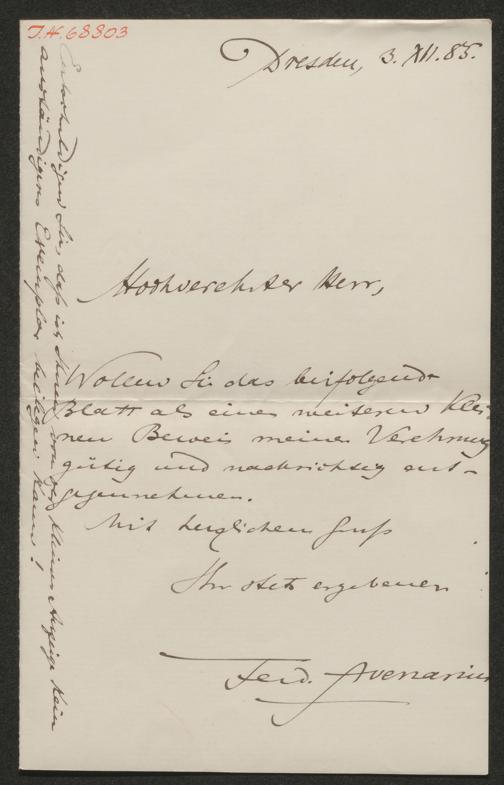 J.N. 68803
Dresden, 3. XII. 85.
Hochverehrter Herr,
Wollen Sie das beifolgende
Blatt als einen weiteren klei-
nen Beweis meiner Verehrung
gütig und nachsichtig ent-
gegennehmen.
Mit herzlichem Gruß
Ihr stets ergebener
Ferd. Avenarius
Entschuldigen Sie, daß ich Ihnen von der kleinen Anzeige kein
anständigeres Exemplar beilegen kann!